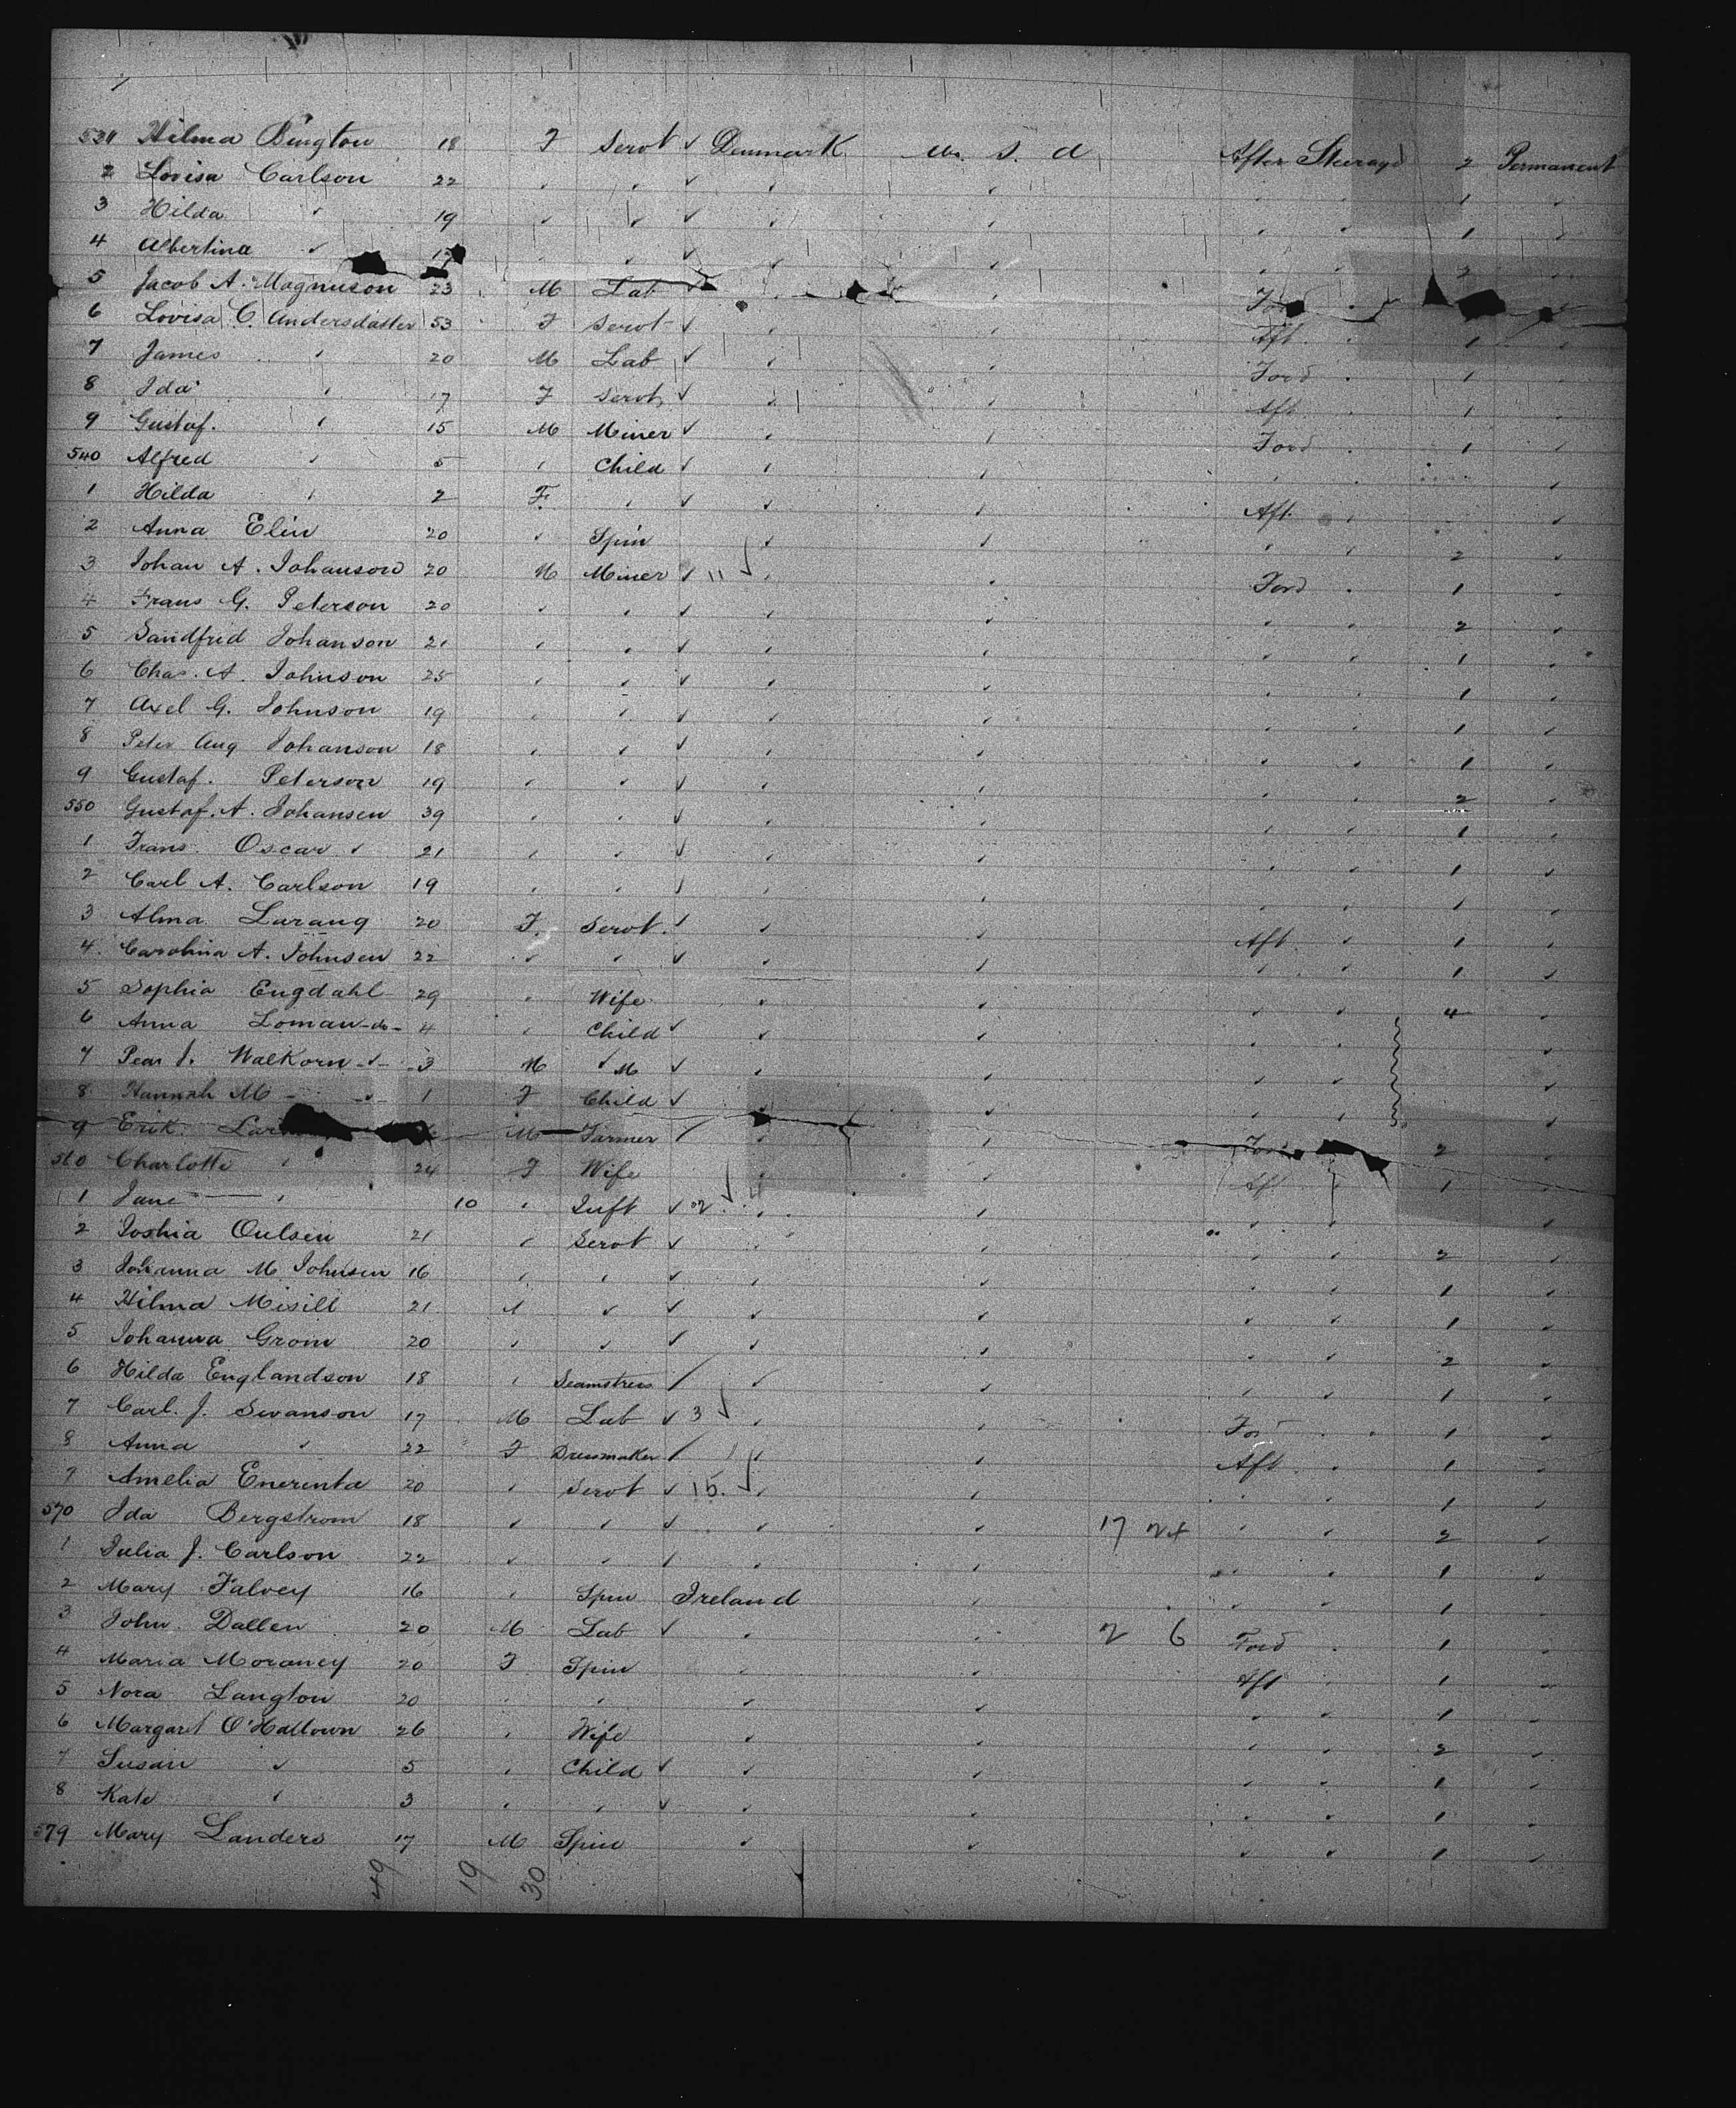 531 Hilma Bington 18 F Servt ✓ Denmark U. S. A After Steerage 2 Permanent
2 Lovisa Carlson 22 ✓ ✓ ✓ ✓ ✓ ✓ ✓ 1 ✓
3 Hilda ✓ 19 ✓ ✓ ✓ ✓ ✓ ✓ ✓ 1 ✓
4 Albertina ✓ 17 ✓ ✓ ✓ ✓ ✓ ✓ ✓ 2 ✓
5 Jacob A. Magnuson 23 M Lab ✓ ✓ ✓ Ford ✓
6 Lovisa C. Andersdatter 53 F Servt ✓ ✓ ✓ Aft ✓ 1 ✓
7 James ✓ 20 M Lab ✓ ✓ ✓ Ford ✓ 1 ✓
8 Ida ✓ 17 F Servt ✓ ✓ ✓ Aft ✓ 1 ✓
9 Gustaf. ✓ 15 M Miner ✓ ✓ ✓ Ford ✓ 1 ✓
540 Alfred ✓ 5 ✓ Child ✓ ✓ ✓ ✓ ✓ ✓
1 Hilda ✓ 2 F. ✓ ✓ ✓ ✓ Aft ✓ ✓
2 Anna Elin 20 ✓ Spin ✓ ✓ ✓ ✓ 2 ✓
3 Johan A. Johanson 20 M Miner ✓ 11 ✓ ✓ Ford ✓ 1 ✓
4 Frans G. Peterson 20 ✓ ✓ ✓ ✓ ✓ ✓ ✓ 2 ✓
5 Sandfrid Johanson 21 ✓ ✓ ✓ ✓ ✓ ✓ ✓ 1 ✓
6 Chas. A. Johnson 25 ✓ ✓ ✓ ✓ ✓ ✓ ✓ 1 ✓
7 Axel G. Johnson 19 ✓ ✓ ✓ ✓ ✓ ✓ ✓ 1 ✓
8 Peter Aug Johanson 18 ✓ ✓ ✓ ✓ ✓ ✓ ✓ 1 ✓
9 Gustaf. Peterson 19 ✓ ✓ ✓ ✓ ✓ ✓ ✓ 2 ✓
550 Gustaf. A. Johansen 39 ✓ ✓ ✓ ✓ ✓ ✓ ✓ 1 ✓
1 Frans. Oscar ✓ 21 ✓ ✓ ✓ ✓ ✓ ✓ ✓ 1 ✓
2 Carl A. Carlson 19 ✓ ✓ ✓ ✓ ✓ ✓ ✓ 1 ✓
3 Alma Larang 20 F. Servt. ✓ ✓ ✓ Aft ✓ 1 ✓
4 Carolina A. Johnsen 22 ✓ ✓ ✓ ✓ ✓ ✓ ✓ 1 ✓
5 Sophia Engdahl 29 ✓ Wife ✓ ✓ ✓ ✓ 4 ✓
6 Anna Loman -do- 4 ✓ Child ✓ ✓ ✓ ✓ ✓ ✓
7 Pear J. Walkorn -✓- 3 M ✓ M ✓ ✓ ✓ ✓ ✓ ✓
8 Hannah M - -✓- 1 F Child ✓ ✓ ✓ ✓ ✓ ✓
9 Erik. M Farmer ✓ ✓ ✓ Ford 2 ✓
560 Charlotte ✓ 24 F Wife ✓ ✓ Aft ✓ 1 ✓
1 Jane ✓ 10 ✓ Inft ✓ 2 ✓ ✓ ✓ ✓ ✓
2 Joshia Oulsen 21 ✓ Servt ✓ ✓ ✓ ✓ ✓ 2 ✓
3 Johanna M Johnsen 16 ✓ ✓ ✓ ✓ ✓ ✓ ✓ 1 ✓
4 Hilma Misill 21 ✓ ✓ ✓ ✓ ✓ ✓ ✓ 1 ✓
5 Johanna Grom 20 ✓ ✓ ✓ ✓ ✓ ✓ ✓ 2 ✓
6 Hilda Englandson 18 ✓ Seamstress ✓ ✓ ✓ ✓ ✓ 1 ✓
7 Carl. J. Swanson 17 M Lab ✓ 3 ✓ ✓ For ✓ 1 ✓
8 Anna ✓ 22 F Dressmaker ✓ 1 ✓ ✓ Aft ✓ 1 ✓
9 Amelia Enerenta 20 ✓ Servt ✓ 15. ✓ ✓ ✓ ✓ 1 ✓
570 Ida Bergstrom 18 ✓ ✓ ✓ ✓ ✓ 17 24 ✓ ✓ 2 ✓
1 Julia J. Carlson 22 ✓ ✓ ✓ ✓ ✓ ✓ ✓ 1 ✓
2 Mary Falvey 16 ✓ Spin Ireland ✓ ✓ ✓ 1 ✓
3 John Dallen 20 M Lab ✓ ✓ ✓ 2 6 Ford ✓ 1 ✓
4 Maria Moraney 20 F Spin ✓ ✓ Aft ✓ 1 ✓
5 Nora Langton 20 ✓ ✓ ✓ ✓ ✓ ✓ 1 ✓
6 Margaret O'Hallown 26 ✓ Wife ✓ ✓ ✓ ✓ 2 ✓
7 Susan ✓ 5 ✓ Child ✓ ✓ ✓ ✓ ✓ 1 ✓
8 Kate ✓ 3 ✓ ✓ ✓ ✓ ✓ ✓ ✓ 1 ✓
579 Mary Landers 17 M Spin ✓ ✓ ✓ ✓ 1 ✓
49 19 30